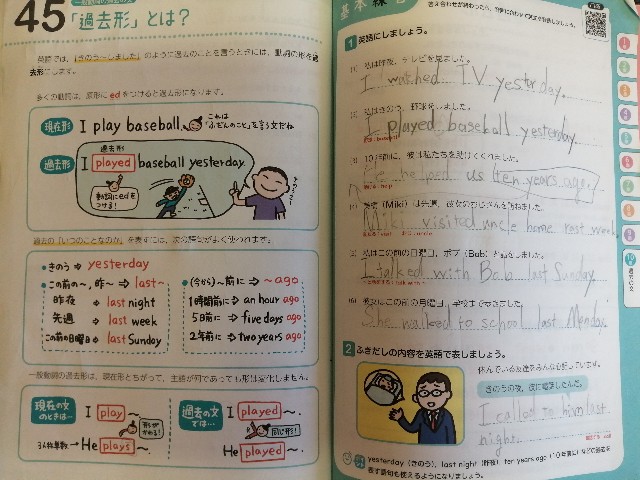 45
一般動詞の過去の文
「過去形」とは?
英語では、「きのう〜しました」のように過去のことを言うときには、動詞の形を過
去形にします。
多くの動詞は、原形に ed をつけると過去形になります。
現在形
I play baseball.
これは
「ふだんのこと」を言う文だね
過去形
過去形
I played baseball yesterday.
動詞にedを
つける!
過去の「いつのことなのか」を表すには、次の語句がよく使われます。
・きのう ⇒ yesterday
・この前の〜, 昨〜 ⇒ last〜
昨夜 ⇒ last night
先週 ⇒ last week
この前の日曜日 ⇒ last Sunday
・(今から)〜前に ⇒ 〜ago
1時間前に ⇒ an hour ago
5日前に ⇒ five days ago
2年前に ⇒ two years ago
一般動詞の過去形は、現在形とちがって、主語が何であっても形は変化しません。
現在の文
のときは…
I play 〜.
形が
かわる!
3人称単数→ He plays 〜.
過去の文
では…
I played 〜.
同じ形!
He played 〜.
基本練習
1 英語にしましょう。
(1) 私は昨夜、テレビを見ました。
I watched TV yesterday.
(2) 私はきのう、野球をしました。
I played baseball yesterday.
(3) 10年前に、彼は私たちを助けてくれました。
He helped us ten years ago.
(Miki) は先週、彼女のおじさんを訪ねました。
Miki visited uncle home rast week
(5) 私はこの前の日曜日、ボブ (Bob) と話をしました。
I talked with Bab last Sunday.
(6) 彼女はこの前の月曜日、学校まで歩きました。
She walked to school last Monday.
2 ふきだしの内容を英語で表しましょう。
休んでいる友達をみんな心配しています。
きのうの夜、彼に電話したんだ。
I called to him last
night.
yesterday (きのう), last night (昨夜) ten years ago (10年前に) などの過去を
表す語句も使えるようになりましょう。
過去の文